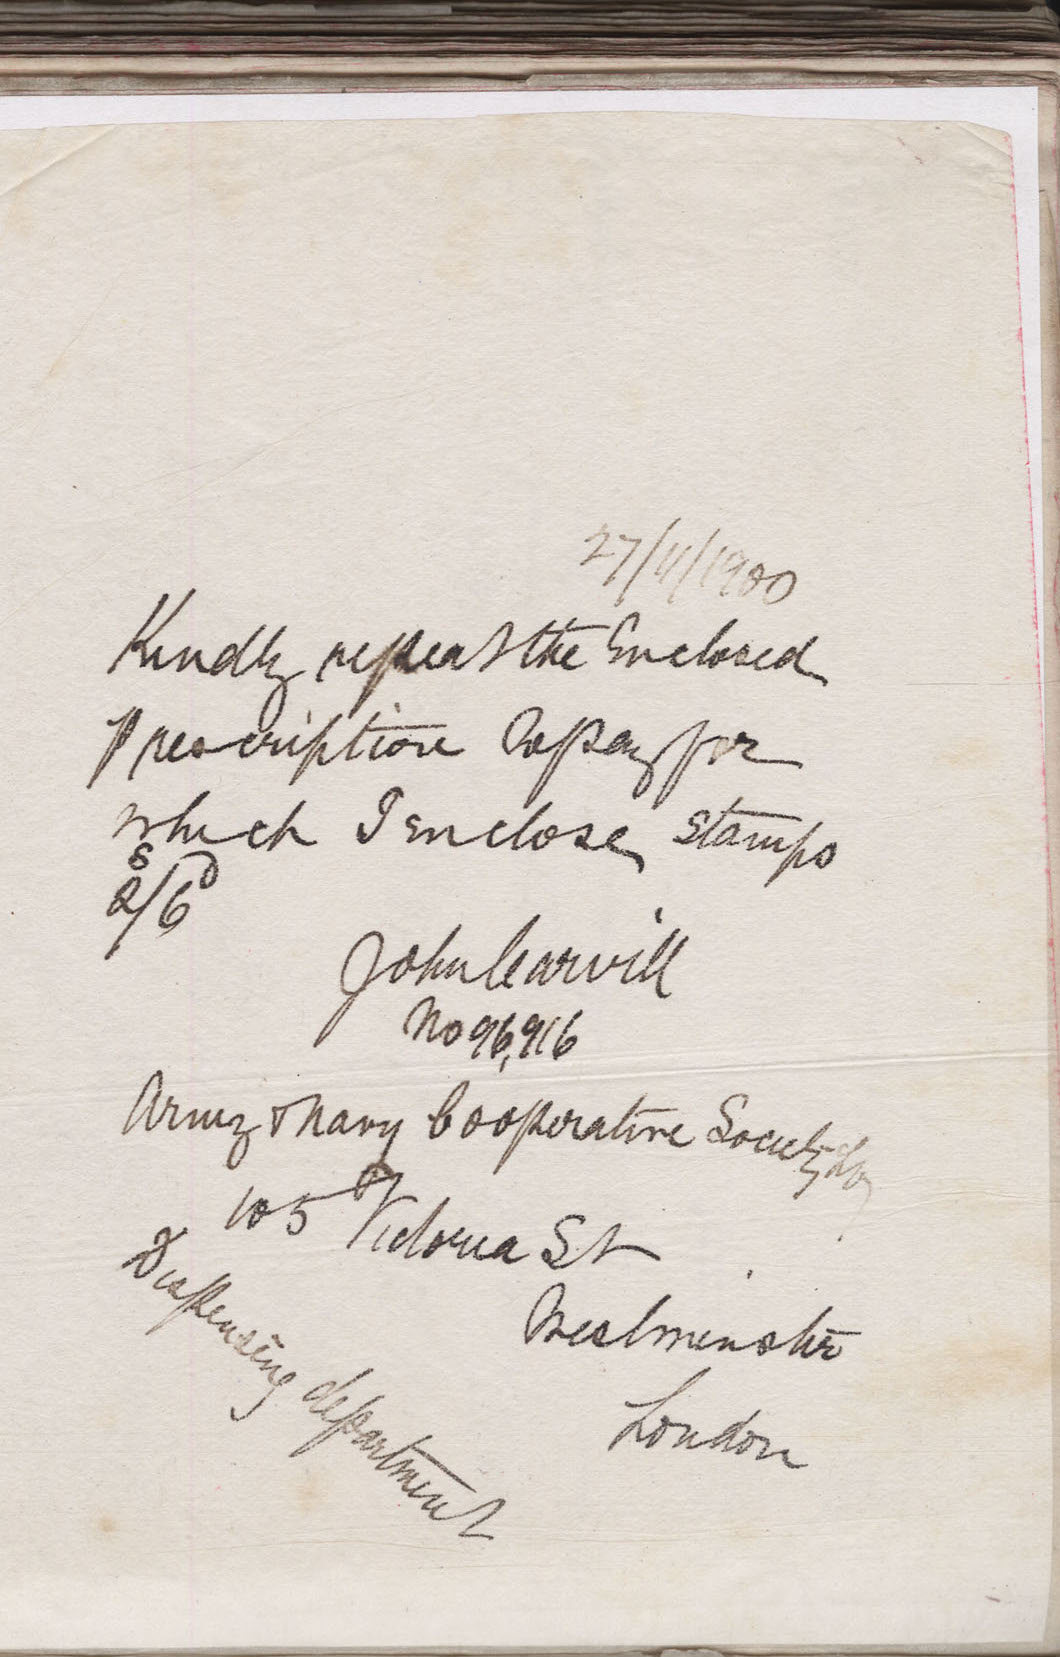 27/4/1900
Kindly repeat the Enclosed
Prescription to pay for
which I enclose stamps
2s/6d
John Carvill
No 96,916
Army & Navy Cooperative Society
105 Victoria St
Westminster
London
Dispensing department